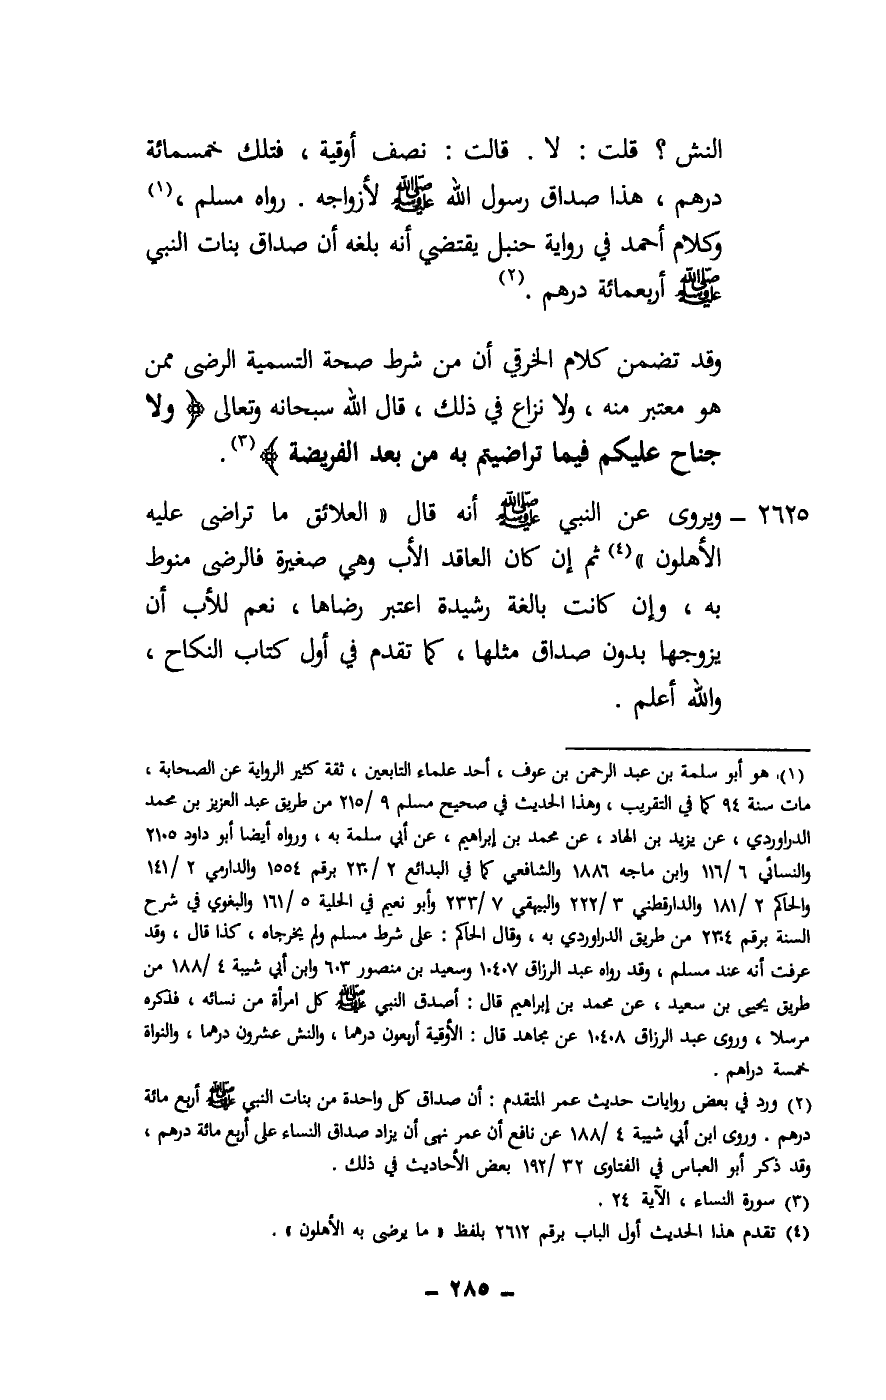 النش ؟ قلت : لا . قالت : نصف أوقية ، فتلك خمسمائة
درهم ، هذا صداق رسول الله ﷺ لأزواجه . رواه مسلم ،(١)
وكلام أحمد في رواية حنبل يقتضي أنه بلغه أن صداق بنات النبي
ﷺ أربعمائة درهم .(٢)
وقد تضمن كلام الخرقي أن من شرط صحة التسمية الرضى ممن
هو معتبر منه ، ولا نزاع في ذلك ، قال الله سبحانه وتعالى ﴿ ولا
جناح عليكم فيما تراضيتم به من بعد الفريضة ﴾(٣) .
٢٦٢٥ – ويروى عن النبي ﷺ أنه قال « العلائق ما تراضى عليه
الأهلون »(٤) ثم إن كان العاقد الأب وهي صغيرة فالرضى منوط
به ، وإن كانت بالغة رشيدة اعتبر رضاها ، نعم للأب أن
يزوجها بدون صداق مثلها ، كما تقدم في أول كتاب النكاح ،
والله أعلم .
(١) هو أبو سلمة بن عبد الرحمن بن عوف ، أحد علماء التابعين ، ثقة كثير الرواية عن الصحابة ،
مات سنة ٩٤ كما في التقريب ، وهذا الحديث في صحيح مسلم ٩ /٢١٥ من طريق عبد العزيز بن محمد
الدراوردي ، عن يزيد بن الهاد ، عن محمد بن إبراهيم ، عن أبي سلمة به ، ورواه أيضا أبو داود ٢١٠٥
والنسائي ٦ /١١٦ وابن ماجه ١٨٨٦ والشافعي كما في البدائع ٢ /٢٣٠ برقم ١٥٥٤ والدارمي ٢ /١٤١
والحاكم ٢ /١٨١ والدارقطني ٣ /٢٢٢ والبيهقي ٧ /٢٣٣ وأبو نعيم في الحلية ٥ /١٦١ والبغوي في شرح
السنة برقم ٢٣٠٤ من طريق الدراوردي به ، وقال الحاكم : على شرط مسلم ولم يخرجاه ، كذا قال ، وقد
عرفت أنه عند مسلم ، وقد رواه عبد الرزاق ١٠٤٠٧ وسعيد بن منصور ٦٠٣ وابن أبي شيبة ٤ /١٨٨ من
طريق يحيى بن سعيد ، عن محمد بن إبراهيم قال : أصدق النبي ﷺ كل امرأة من نسائه ، فذكره
مرسلا ، وروى عبد الرزاق ١٠٤٠٨ عن مجاهد قال : الأوقية أربعون درهما ، والنش عشرون درهما ، والنواة
خمسة دراهم .
(٢) ورد في بعض روايات حديث عمر المتقدم : أن صداق كل واحدة من بنات النبي ﷺ أربع مائة
درهم . وروى ابن أبي شيبة ٤ /١٨٨ عن نافع أن عمر نهى أن يزاد صداق النساء على أربع مائة درهم ،
وقد ذكر أبو العباس في الفتاوى ٣٢ /١٩٢ بعض الأحاديث في ذلك .
(٣) سورة النساء ، الآية ٢٤ .
(٤) تقدم هذا الحديث أول الباب برقم ٢٦١٢ بلفظ « ما يرضى به الأهلون » .
– ٢٨٥ –